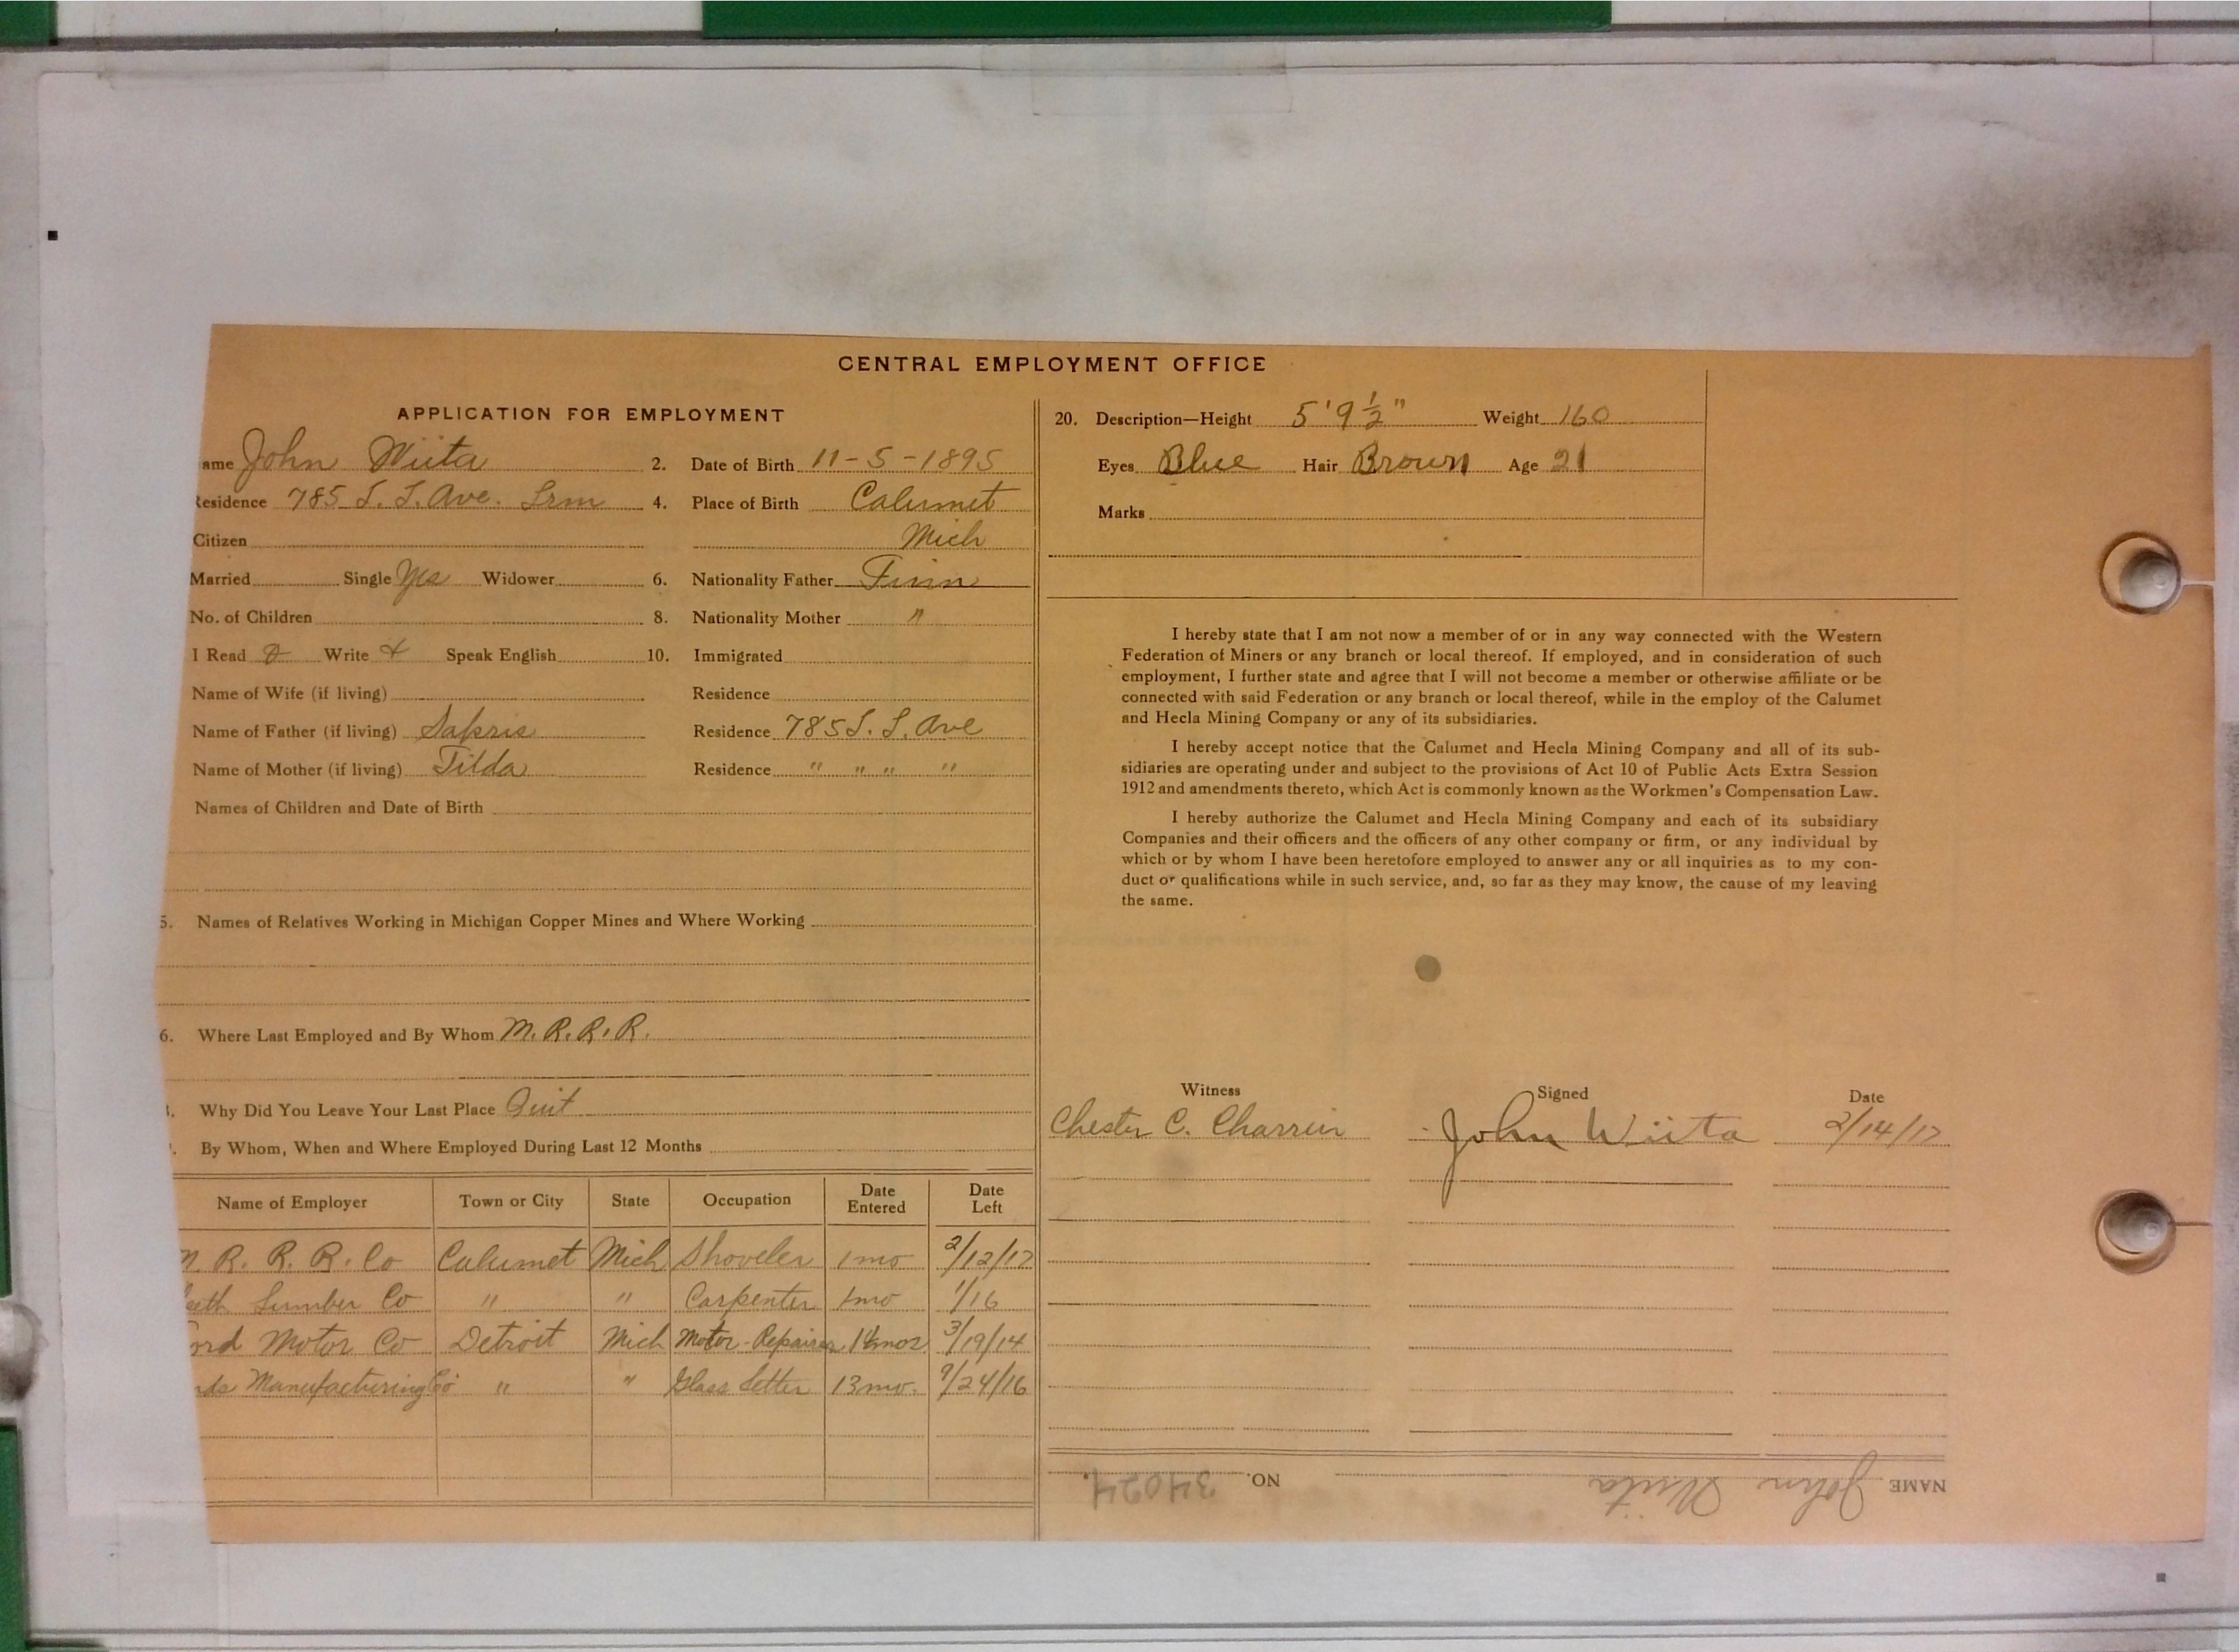 CENTRAL EMPLOYMENT OFFICE
APPLICATION FOR EMPLOYMENT
ame John Wiita 2. Date of Birth 11-5-1895
Residence 785 L. L. Ave. Lrm 4. Place of Birth Calumet
Citizen Mich
Married Single Yes Widower 6. Nationality Father Finn
No. of Children 8. Nationality Mother "
I Read Write Speak English 10. Immigrated
Name of Wife (if living) Residence
Name of Father (if living) Sakris Residence 785 L. L. Ave
Name of Mother (if living) Tilda Residence " " " "
Names of Children and Date of Birth
5. Names of Relatives Working in Michigan Copper Mines and Where Working
6. Where Last Employed and By Whom M. R. R. R.
Why Did You Leave Your Last Place Quit
By Whom, When and Where Employed During Last 12 Months
Name of Employer Town or City State Occupation Date Entered Date Left
M. R. R. R. Co Calumet Mich Shoveler 1 mo 2/12/17
Lumber Co " " Carpenter 1 mo 1/16
ord Motor Co Detroit Mich Motor-Repairer 14 mos 3/19/14
nds Manufacturing Co " " Glass Setter 13 mo. 9/24/16
20. Description—Height 5' 9 1/2" Weight 160
Eyes Blue Hair Brown Age 21
Marks
I hereby state that I am not now a member of or in any way connected with the Western
Federation of Miners or any branch or local thereof. If employed, and in consideration of such
employment, I further state and agree that I will not become a member or otherwise affiliate or be
connected with said Federation or any branch or local thereof, while in the employ of the Calumet
and Hecla Mining Company or any of its subsidiaries.
I hereby accept notice that the Calumet and Hecla Mining Company and all of its sub-
sidiaries are operating under and subject to the provisions of Act 10 of Public Acts Extra Session
1912 and amendments thereto, which Act is commonly known as the Workmen's Compensation Law.
I hereby authorize the Calumet and Hecla Mining Company and each of its subsidiary
Companies and their officers and the officers of any other company or firm, or any individual by
which or by whom I have been heretofore employed to answer any or all inquiries as to my con-
duct or qualifications while in such service, and, so far as they may know, the cause of my leaving
the same.
Witness Signed Date
Chester C. Charrein John Wiita 2/14/17
NAME John Wiita NO. 34024